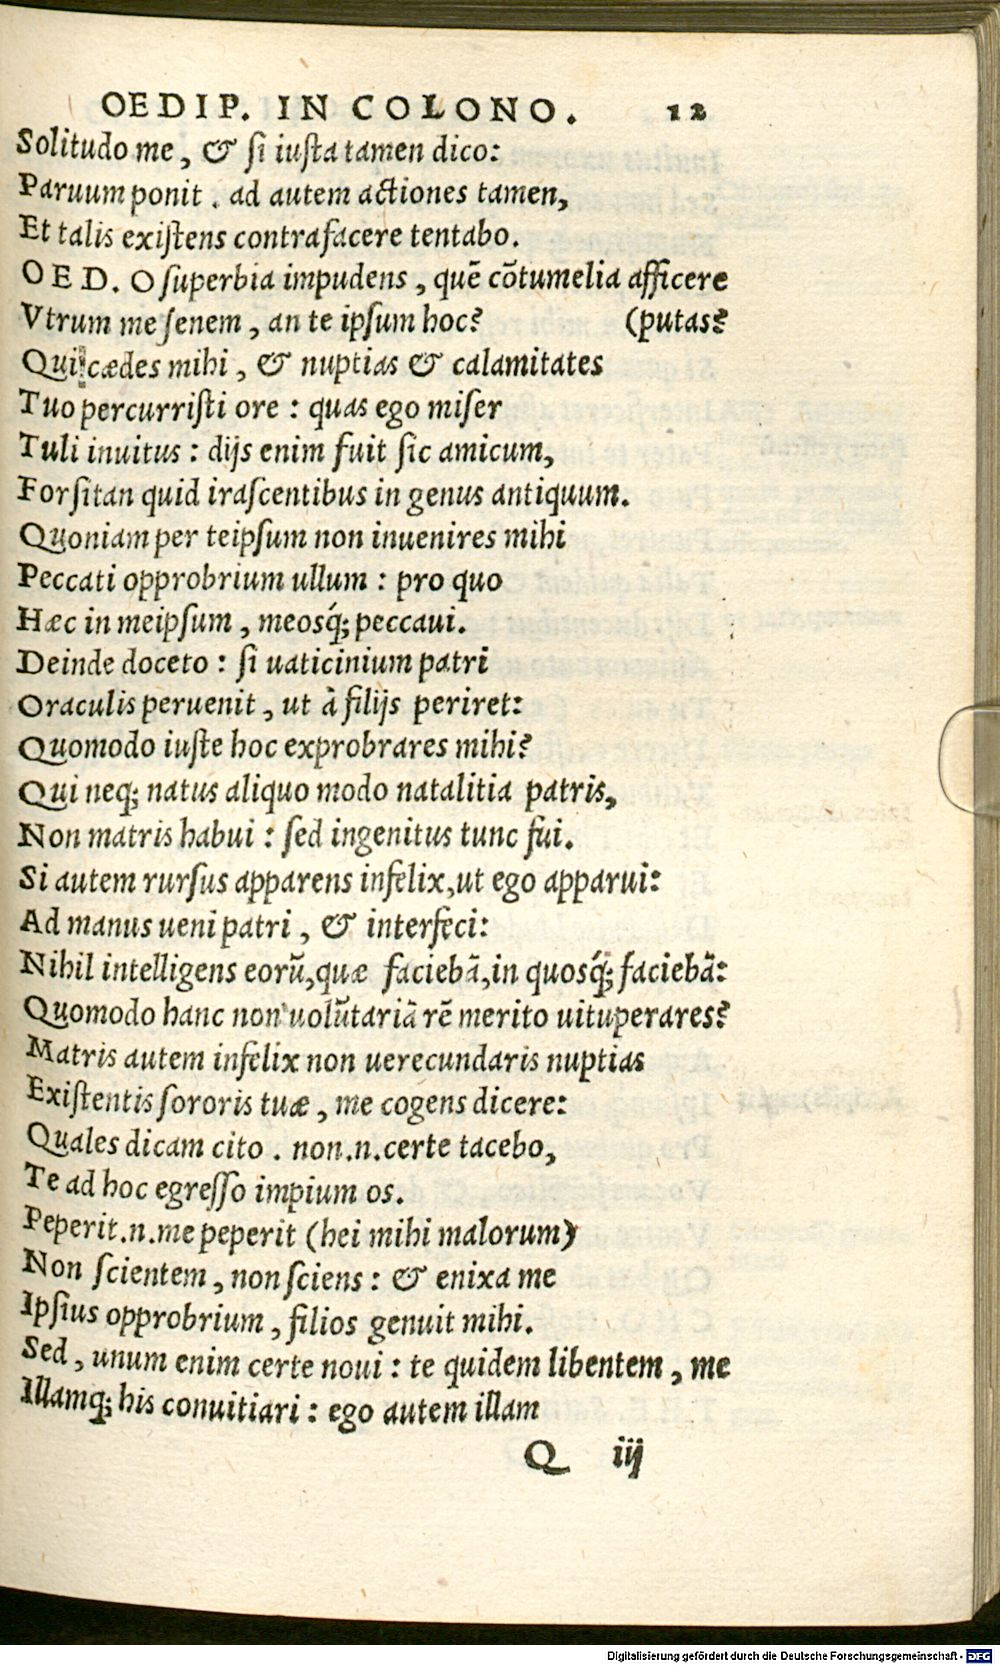 OEDIP. IN COLONO. 12
Solitudo me, & si iusta tamen dico:
Paruum ponit. ad autem actiones tamen,
Et talis existens contrafacere tentabo.
OED. O superbia impudens, quē cōtumelia afficere
Vtrum me senem, an te ipsum hoc? (putas?
Qui cædes mihi, & nuptias & calamitates
Tuo percurristi ore: quas ego miser
Tuli inuitus: dijs enim fuit sic amicum,
Forsitan quid irascentibus in genus antiquum.
Quoniam per teipsum non inuenires mihi
Peccati opprobrium ullum: pro quo
Hæc in meipsum, meosq́; peccaui.
Deinde doceto: si uaticinium patri
Oraculis peruenit, ut à filijs periret:
Quomodo iuste hoc exprobrares mihi?
Qui neq; natus aliquo modo natalitia patris,
Non matris habui: sed ingenitus tunc fui.
Si autem rursus apparens infelix, ut ego apparui:
Ad manus ueni patri, & interfeci:
Nihil intelligens eorū, quæ faciebā, in quosq́; faciebā:
Quomodo hanc non uolūtariā rē merito uituperares?
Matris autem infelix non uerecundaris nuptias
Existentis sororis tuæ, me cogens dicere:
Quales dicam cito. non .n. certe tacebo,
Te ad hoc egresso impium os.
Peperit .n. me peperit (hei mihi malorum)
Non scientem, non sciens: & enixa me
Ipsius opprobrium, filios genuit mihi.
Sed, unum enim certe noui: te quidem libentem, me
Illamq; his conuitiari: ego autem illam
Q iij
Digitalisierung gefördert durch die Deutsche Forschungsgemeinschaft - DFG